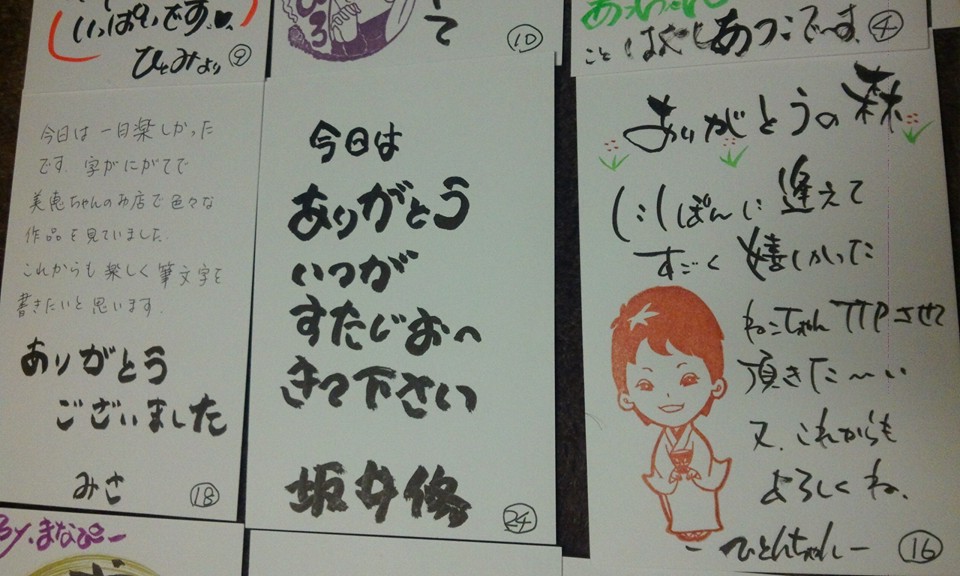 いっぱいです♥
ひとみより ⑨
て
⑩
こと
あつこでーす ④
今日は一日楽しかった
です。字がにがてで
美恵ちゃんのお店で色々な
作品を見ていました。
これからも楽しく筆文字を
書きたいと思います。
ありがとう
ございました
みさ ⑱
今日は
ありがとう
いつか
すたじおへ
きて下さい
坂井修
㉔
ありがとうの森
しーしぽんに逢えて
すごく嬉しかった
ねこちゃんTTPさせて
頂きた〜い
又、これからも
よろしくね、
ーひとんちゃんー ⑯
by.まなぴー